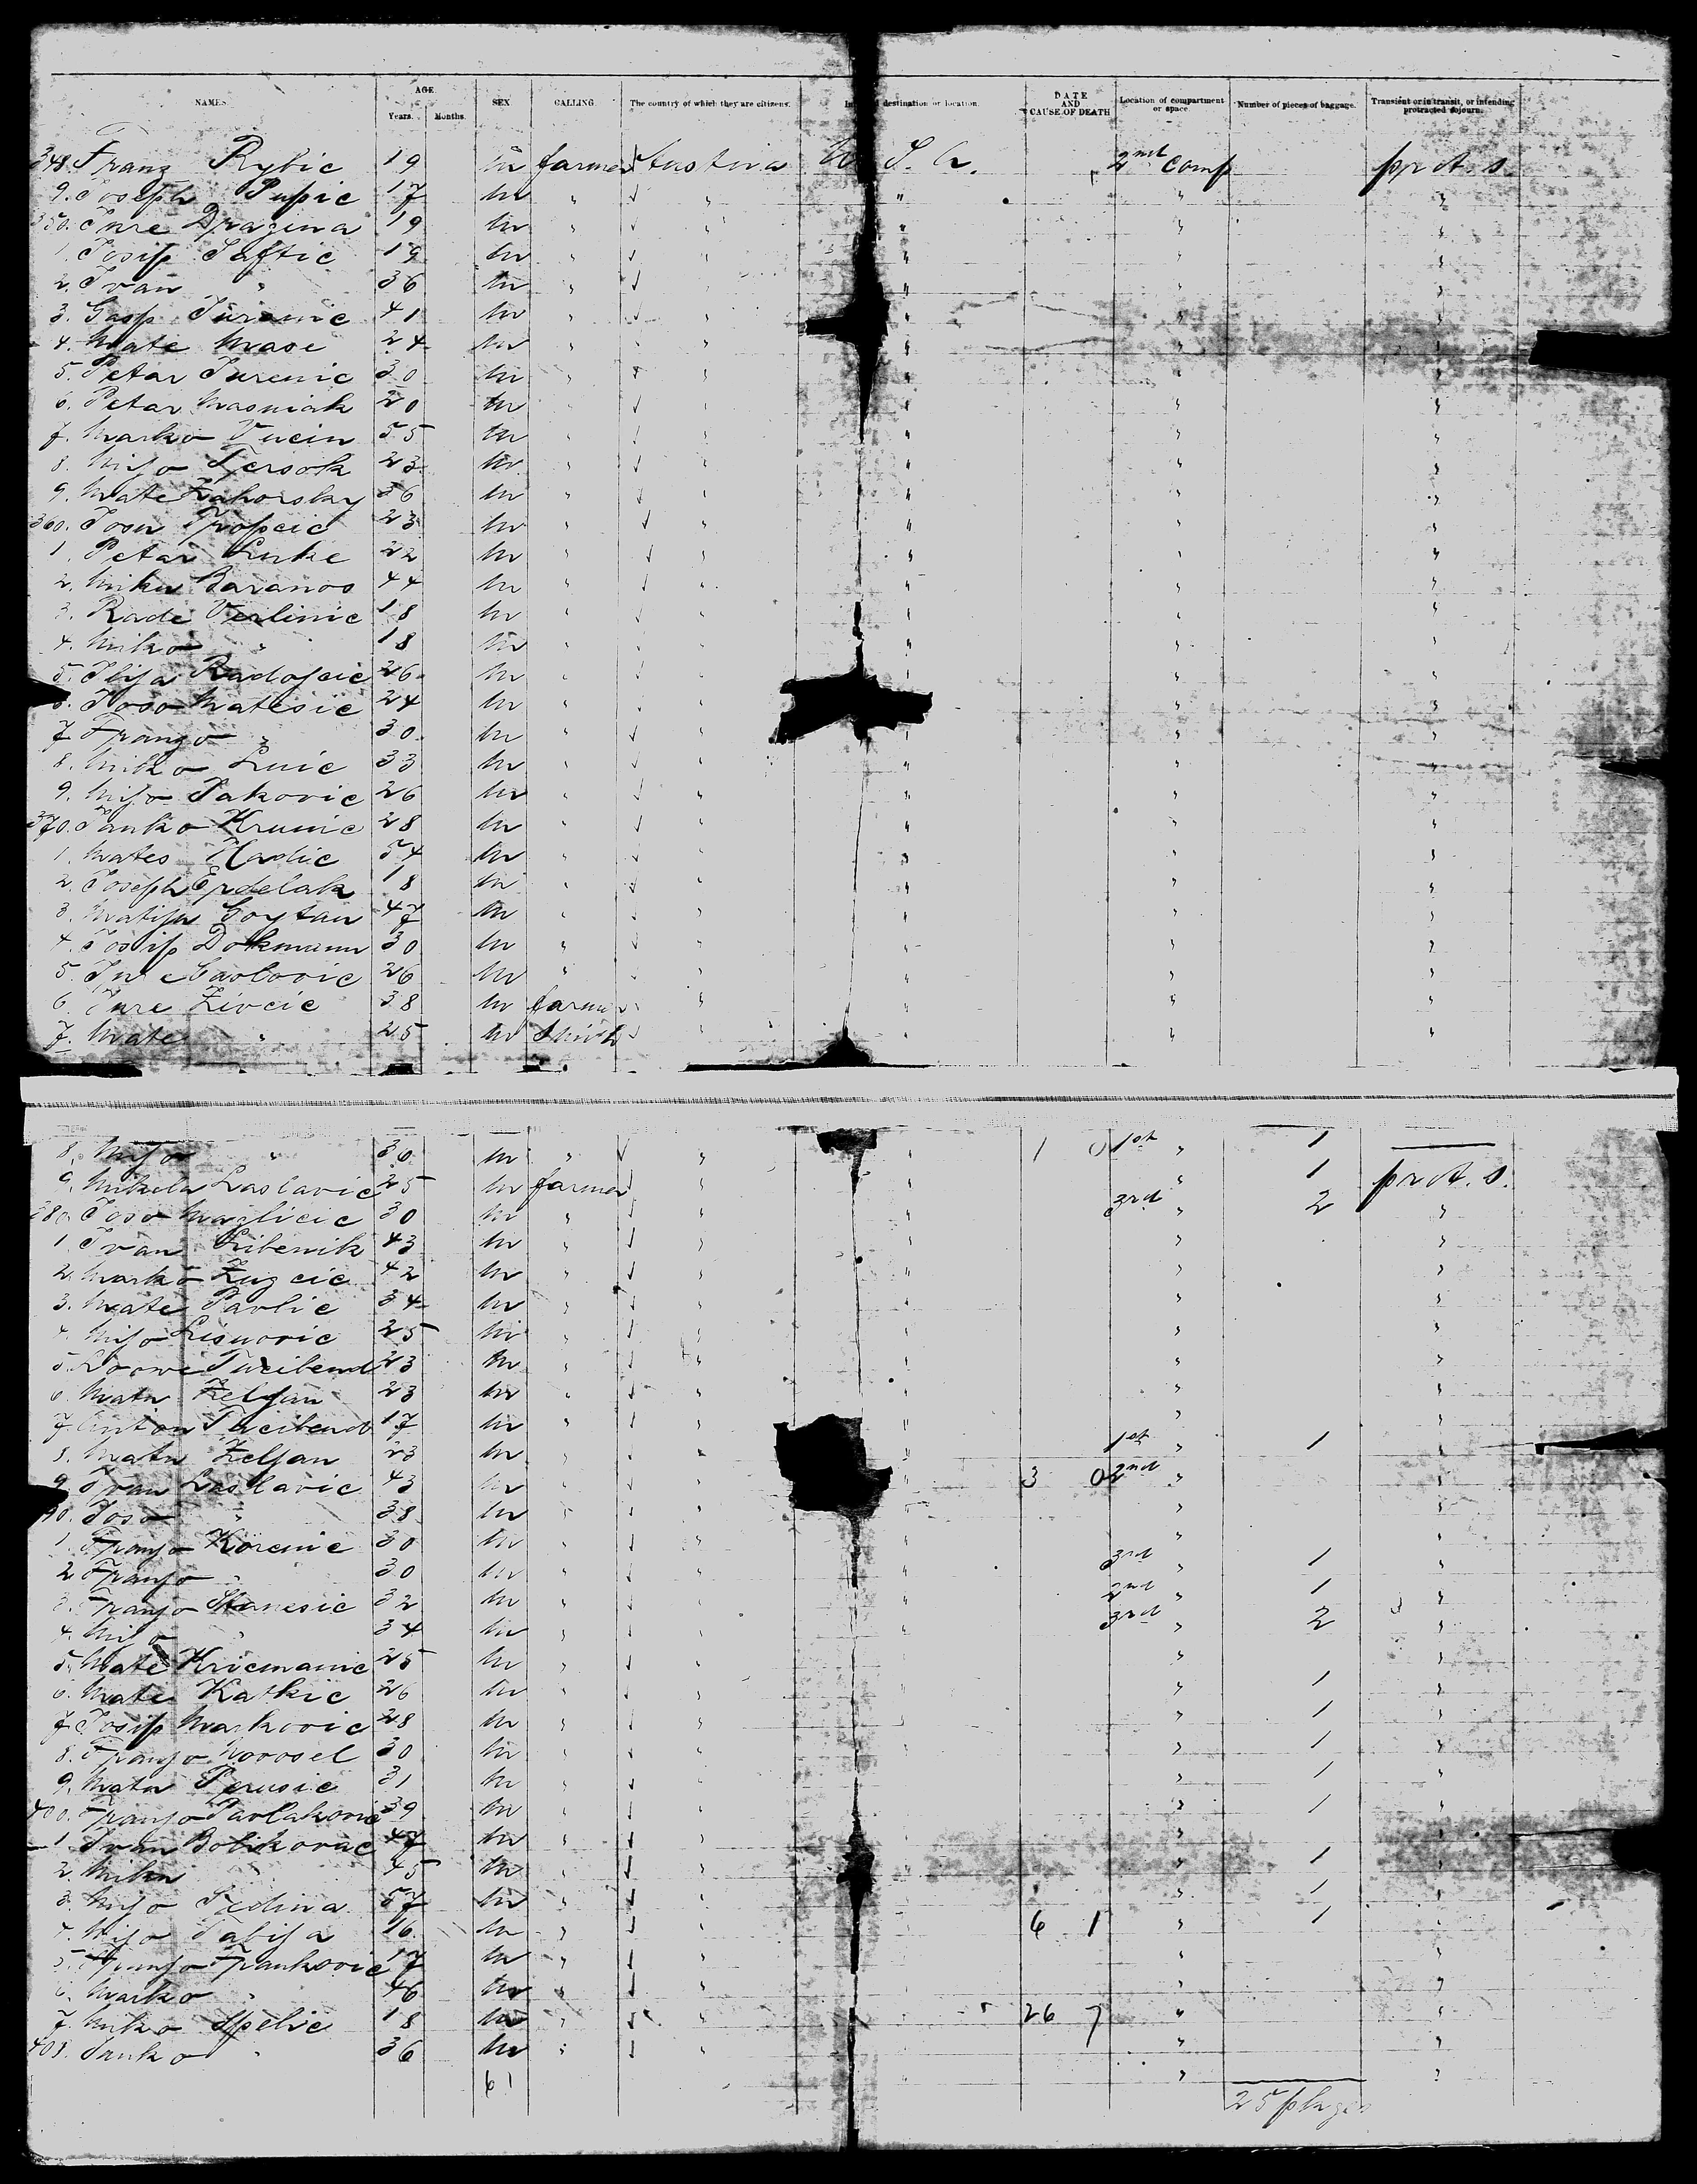 NAMES. AGE Years. Months. SEX CALLING. The country of which they are citizens. destination or location. DATE AND CAUSE OF DEATH Location of compartment or space. Number of pieces of baggage. Transient or in transit, or intending protracted sojourn.
348. Franz Rybic 19 m farmer Austria U. S. A. 2nd Comp prot. s.
9. Joseph Pupic 17 m " " " " "
350. Jure Drazina 19 m " " " " "
1. Josip Jaftic 19 m " " " " "
2. Ivan " 36 m " " " " "
3. Gasp Jurenic 41 m " " " " "
4. Mate Mase 24 m " " " " "
5. Petar Jurenic 30 m " " " " "
6. Petar Masniak 20 m " " " " "
7. Marko Vucin 55 m " " " " "
8. Mijo Tersok 23 m " " " " "
9. Mate Zahorsky 36 m " " " " "
360. Josu 23 m " " " " "
1. Petar Luke 22 m " " " " "
2. Miku Baranos 44 m " " " " "
3. Rade Verlinic 18 m " " " " "
4. Miko " 18 m " " " " "
5. Ilija Radoscic 26 m " " " " "
6. Joso Matesic 24 m " " " " "
7. Franzo " 30 m " " " " "
8. Miko Luic 33 m " " " " "
9. Mijo Jakovic 26 m " " " " "
370. Janko Krunic 28 m " " " " "
1. Mates Hadic 54 m " " " " "
2. Joseph Erdelak 18 m " " " " "
3. Matija Goytan 47 m " " " " "
4. Josip Dokmann 30 m " " " " "
5. Carlovic 26 m " " " " "
6. Jure Zivcic 38 m farmer " " " "
7. Mate " 25 m Smith " " " "
8. Mijo " 30 m " " " 1 0 1st " 1
9. Mikula Laslavic 25 m farmer " " " 1 prot. s.
380. Joso Mazlicic 30 m " " " 3rd " 2 "
1. Ivan Ribenik 43 m " " " " "
2. Marko Zuzcic 42 m " " " " "
3. Mate Pavlic 34 m " " " " "
4. Mijo Lisnovic 25 m " " " " "
5. Tucibend 23 m " " " " "
6. Matu Zeljan 23 m " " " " "
7. Anton Tucibend 17 m " " " " "
8. Matu Zeljan 23 m " " " 1st " 1 "
9. Ivan Laslavic 43 m " " " 3 0 2nd " "
90. Joso " 38 m " " " " "
1. Franjo Korenic 30 m " " " " "
2. Franjo " 30 m " " " 3rd " 1 "
3. Franjo Stanesic 32 m " " " 2nd " 1 "
4. Mijo " 34 m " " " 3rd " 2 "
5. Mate Kricmanic 25 m " " " " "
6. Mate Katkic 26 m " " " " 1 "
7. Josip Markovic 28 m " " " " 1 "
8. Franjo Novosel 30 m " " " " 1 "
9. Matu Perusic 31 m " " " " 1 "
400. Franjo Pavlakovic 39 m " " " " 1 "
1. Ivan Botikovac 47 m " " " " "
2. Miku 45 m " " " " 1 "
3. Mijo Fedina 57 m " " " " 1 "
4. Mijo Fabija 16 m " " " 6 1 " 1 "
5. Franjo Frankovic 17 m " " " " "
6. Marko " 46 m " " " " "
7. Miko Spelic 18 m " " " 26 7 " "
408. Janko " 36 m " " " " "
61 " "
25 pkges